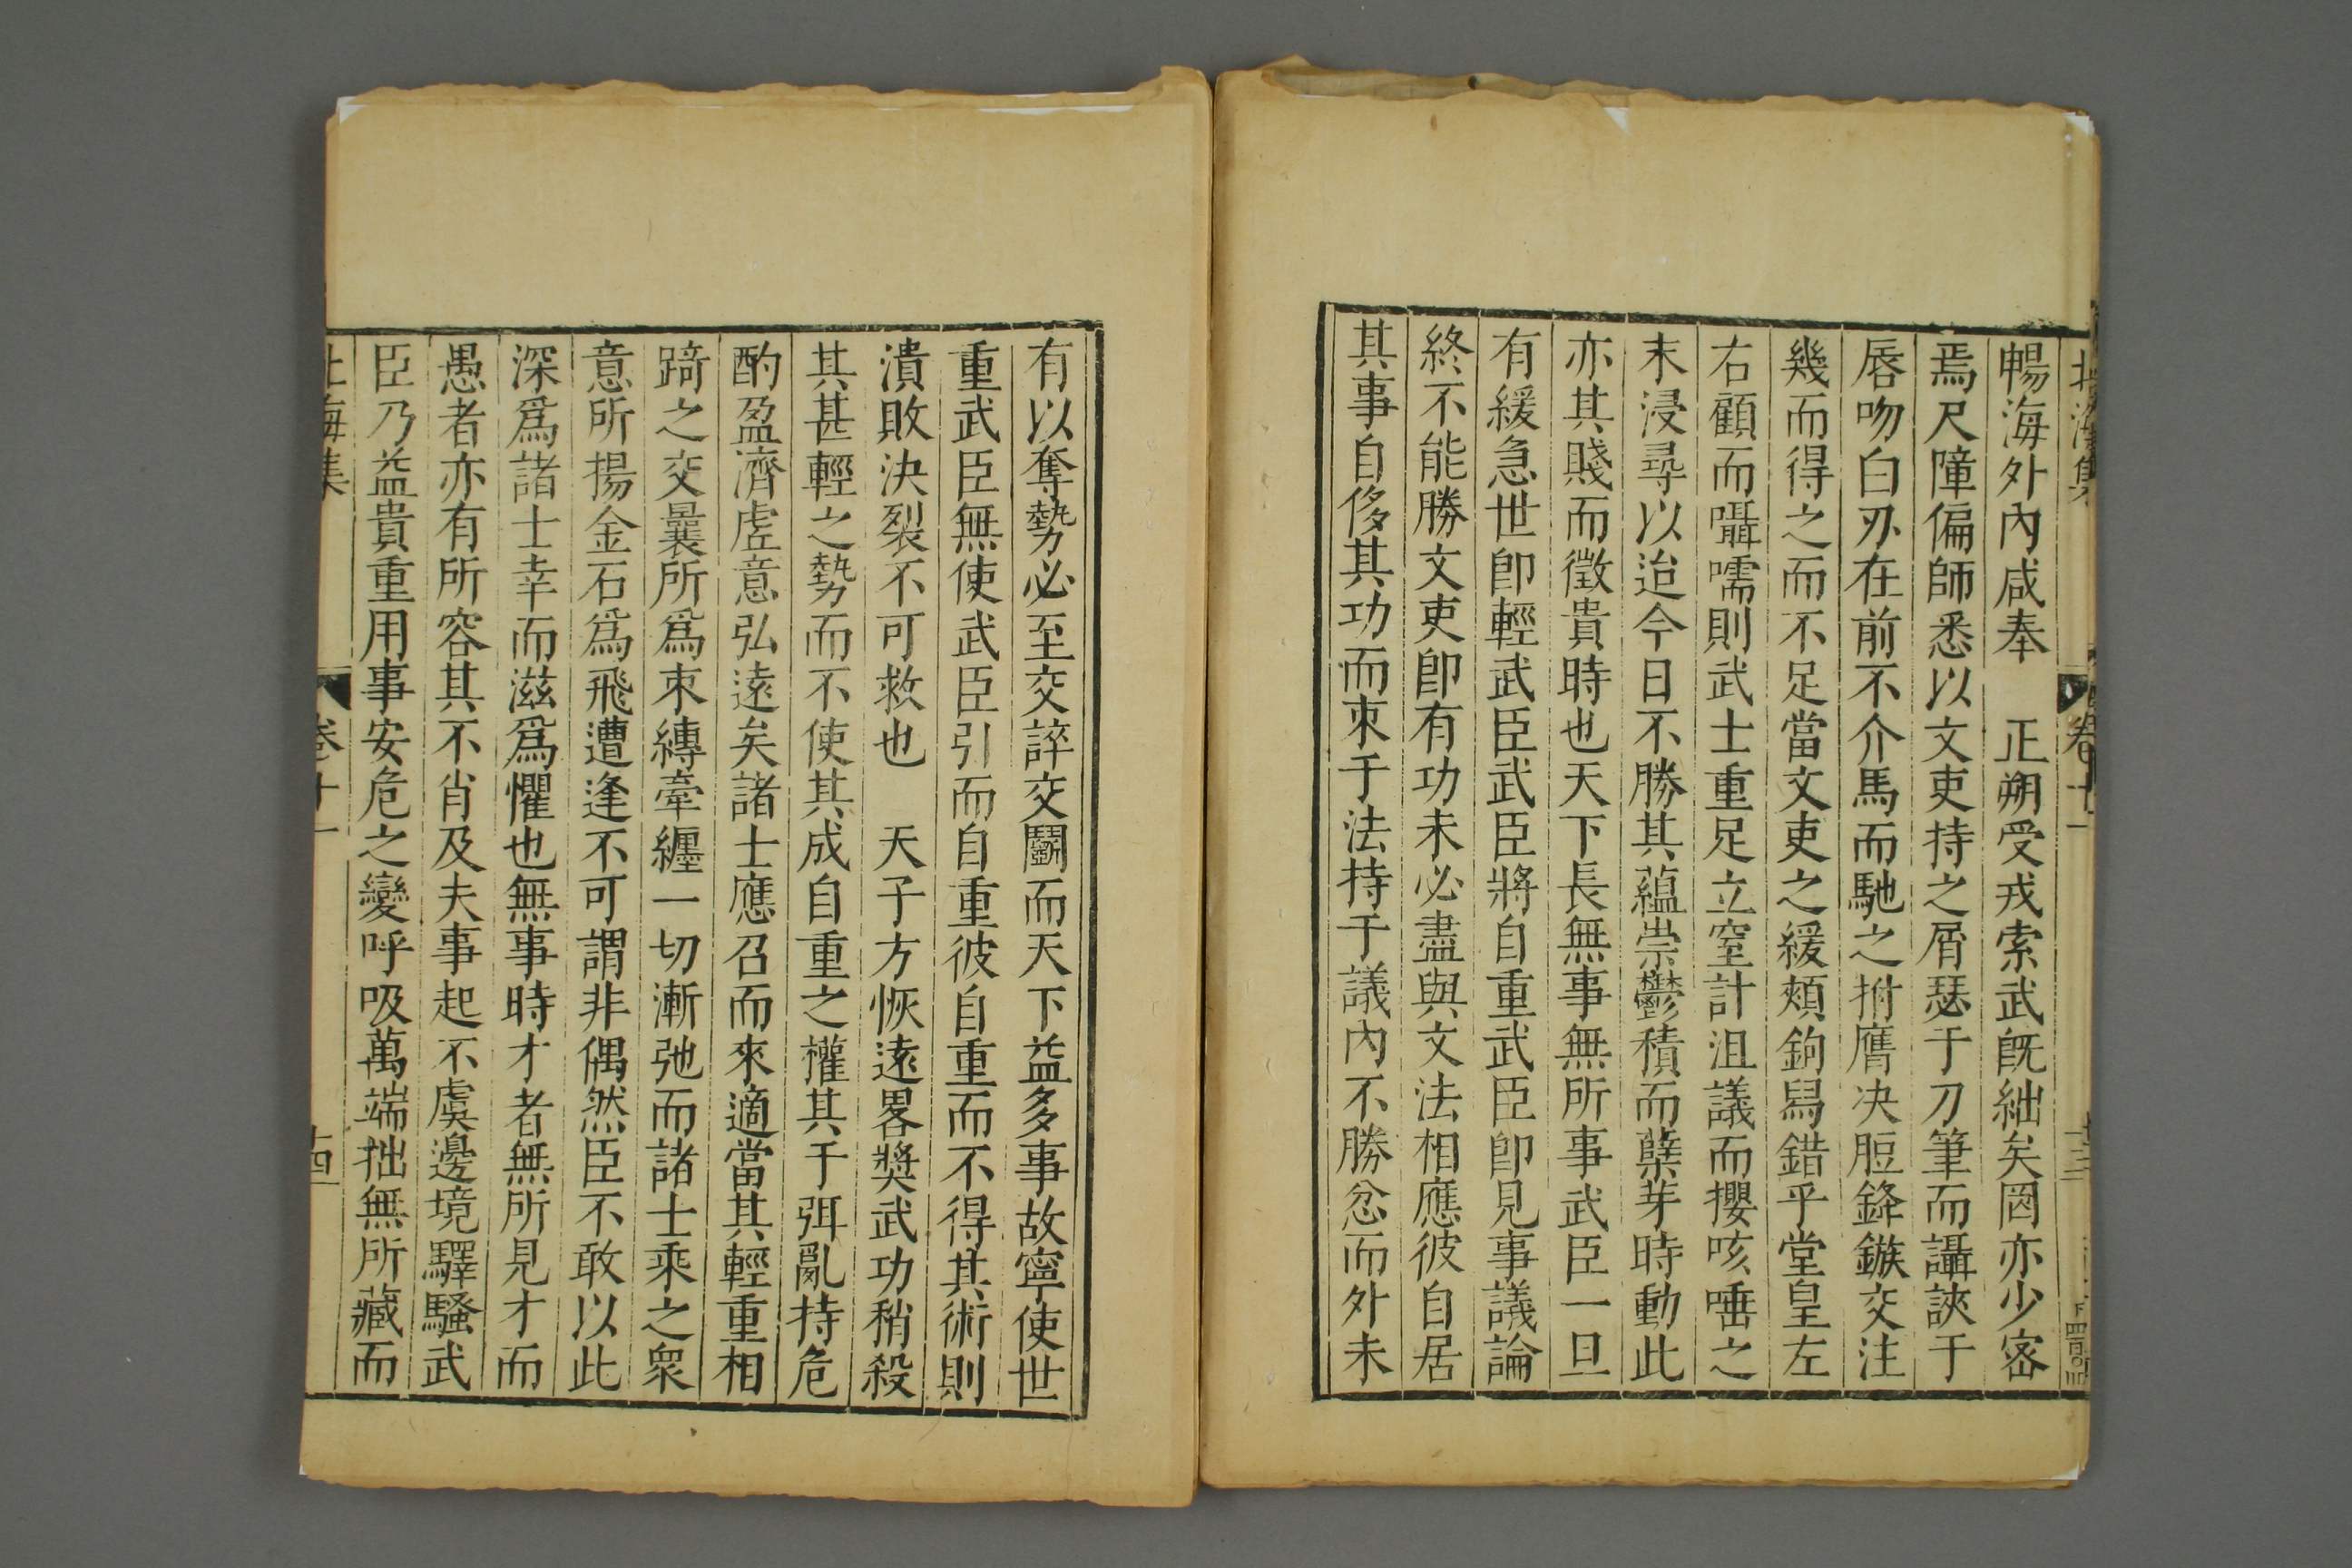 北海集
卷十一
十三
暢海外內咸奉　正朔受戎索武既絀矣罔亦少密
焉尺障偏師悉以文吏持之屑瑟于刀筆而讘詼于
唇吻白刃在前不介馬而馳之拊膺決脰鋒鏃交注
幾而得之而不足當文吏之緩頰鉤舄錯乎堂皇左
右顧而囁嚅則武士重足立窒計沮議而攖咳唾之
末浸尋以迨今日不勝其蘊崇鬱積而蘖芽時動此
亦其賤而徵貴時也天下長無事無所事武臣一旦
有緩急世卽輕武臣武臣將自重武臣卽見事議論
終不能勝文吏卽有功未必盡與文法相應彼自居
其事自侈其功而束于法持于議內不勝忿而外未
有以奪勢必至交誶交鬭而天下益多事故寧使世
重武臣無使武臣引而自重彼自重而不得其術則
潰敗決裂不可救也　天子方恢遠畧獎武功稍殺
其甚輕之勢而不使其成自重之權其于弭亂持危
酌盈濟虛意弘遠矣諸士應召而來適當其輕重相
踦之交曩所爲束縛牽纏一切漸弛而諸士乘之衆
意所揚金石爲飛遭逢不可謂非偶然臣不敢以此
深爲諸士幸而滋爲懼也無事時才者無所見才而
愚者亦有所容其不肖及夫事起不虞邊境驛騷武
臣乃益貴重用事安危之變呼吸萬端拙無所藏而
北海集
卷十一
十四